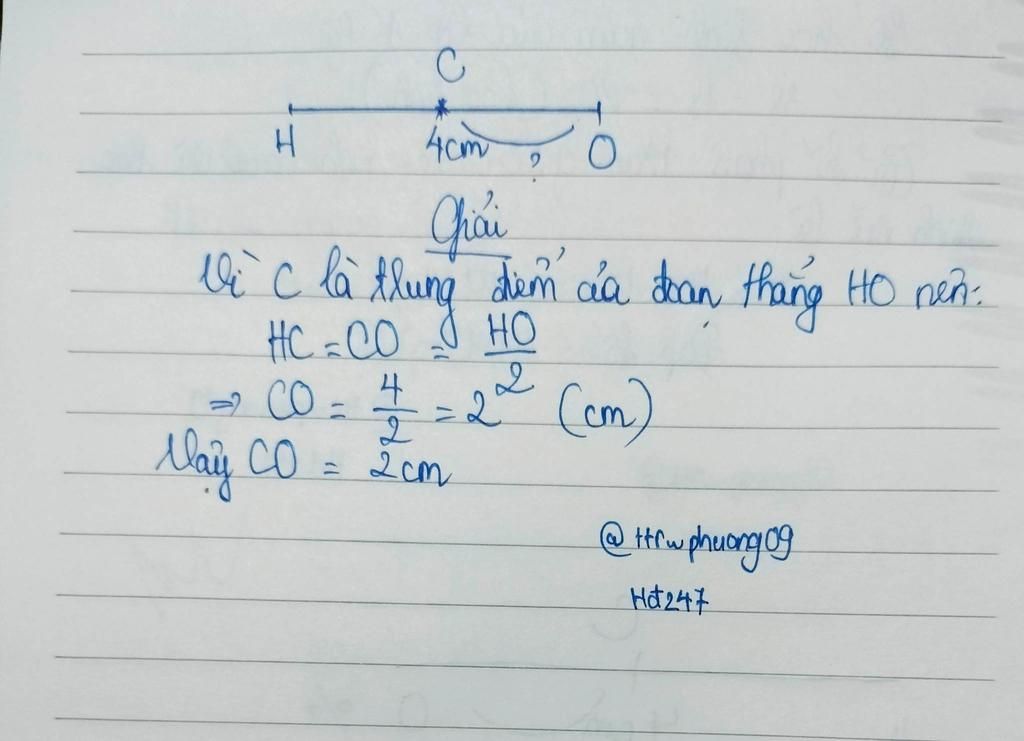 C
H 4cm ? O
Giải
Vì C là trung điểm của đoạn thẳng HO nên:
HC = CO = HO/2
=> CO = 4/2 = 2 (cm)
Vậy CO = 2cm
@ttrwphuong09
Hđ247